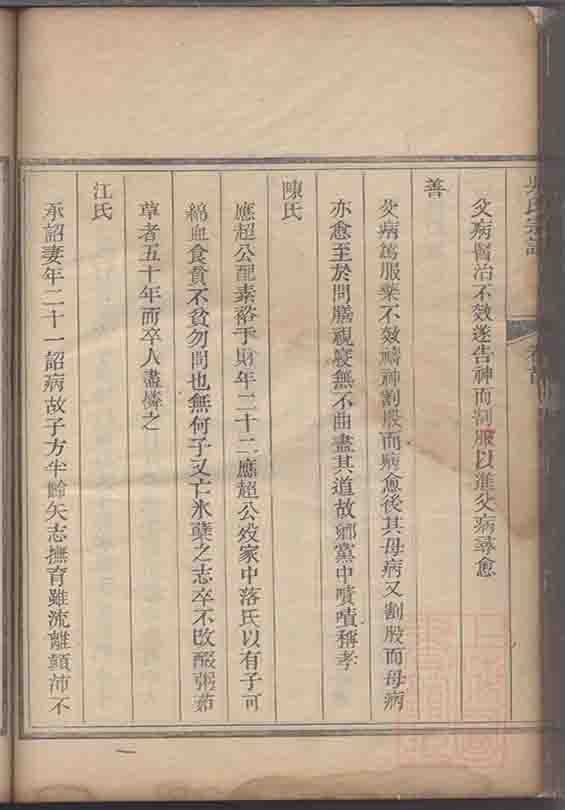 吳氏宗譜 卷首
父病醫治不效遂告神而割股以進父病尋愈
善
父病篤服藥不效禱神割股而病愈後其母病又割股而母病
亦愈至於問膳視寢無不曲盡其道故鄉黨中嘖嘖稱孝
陳氏
應超公配素裕于財年二十二應超公歿家中落氏以有子可
縞血食貧不貧勿問也無何子又亡氷孽之志卒不改啜粥茹
草者五十年而卒人盡憐之
江氏
承詔妻年二十一詔病故子方半齡矢志撫育雖流離顛沛不